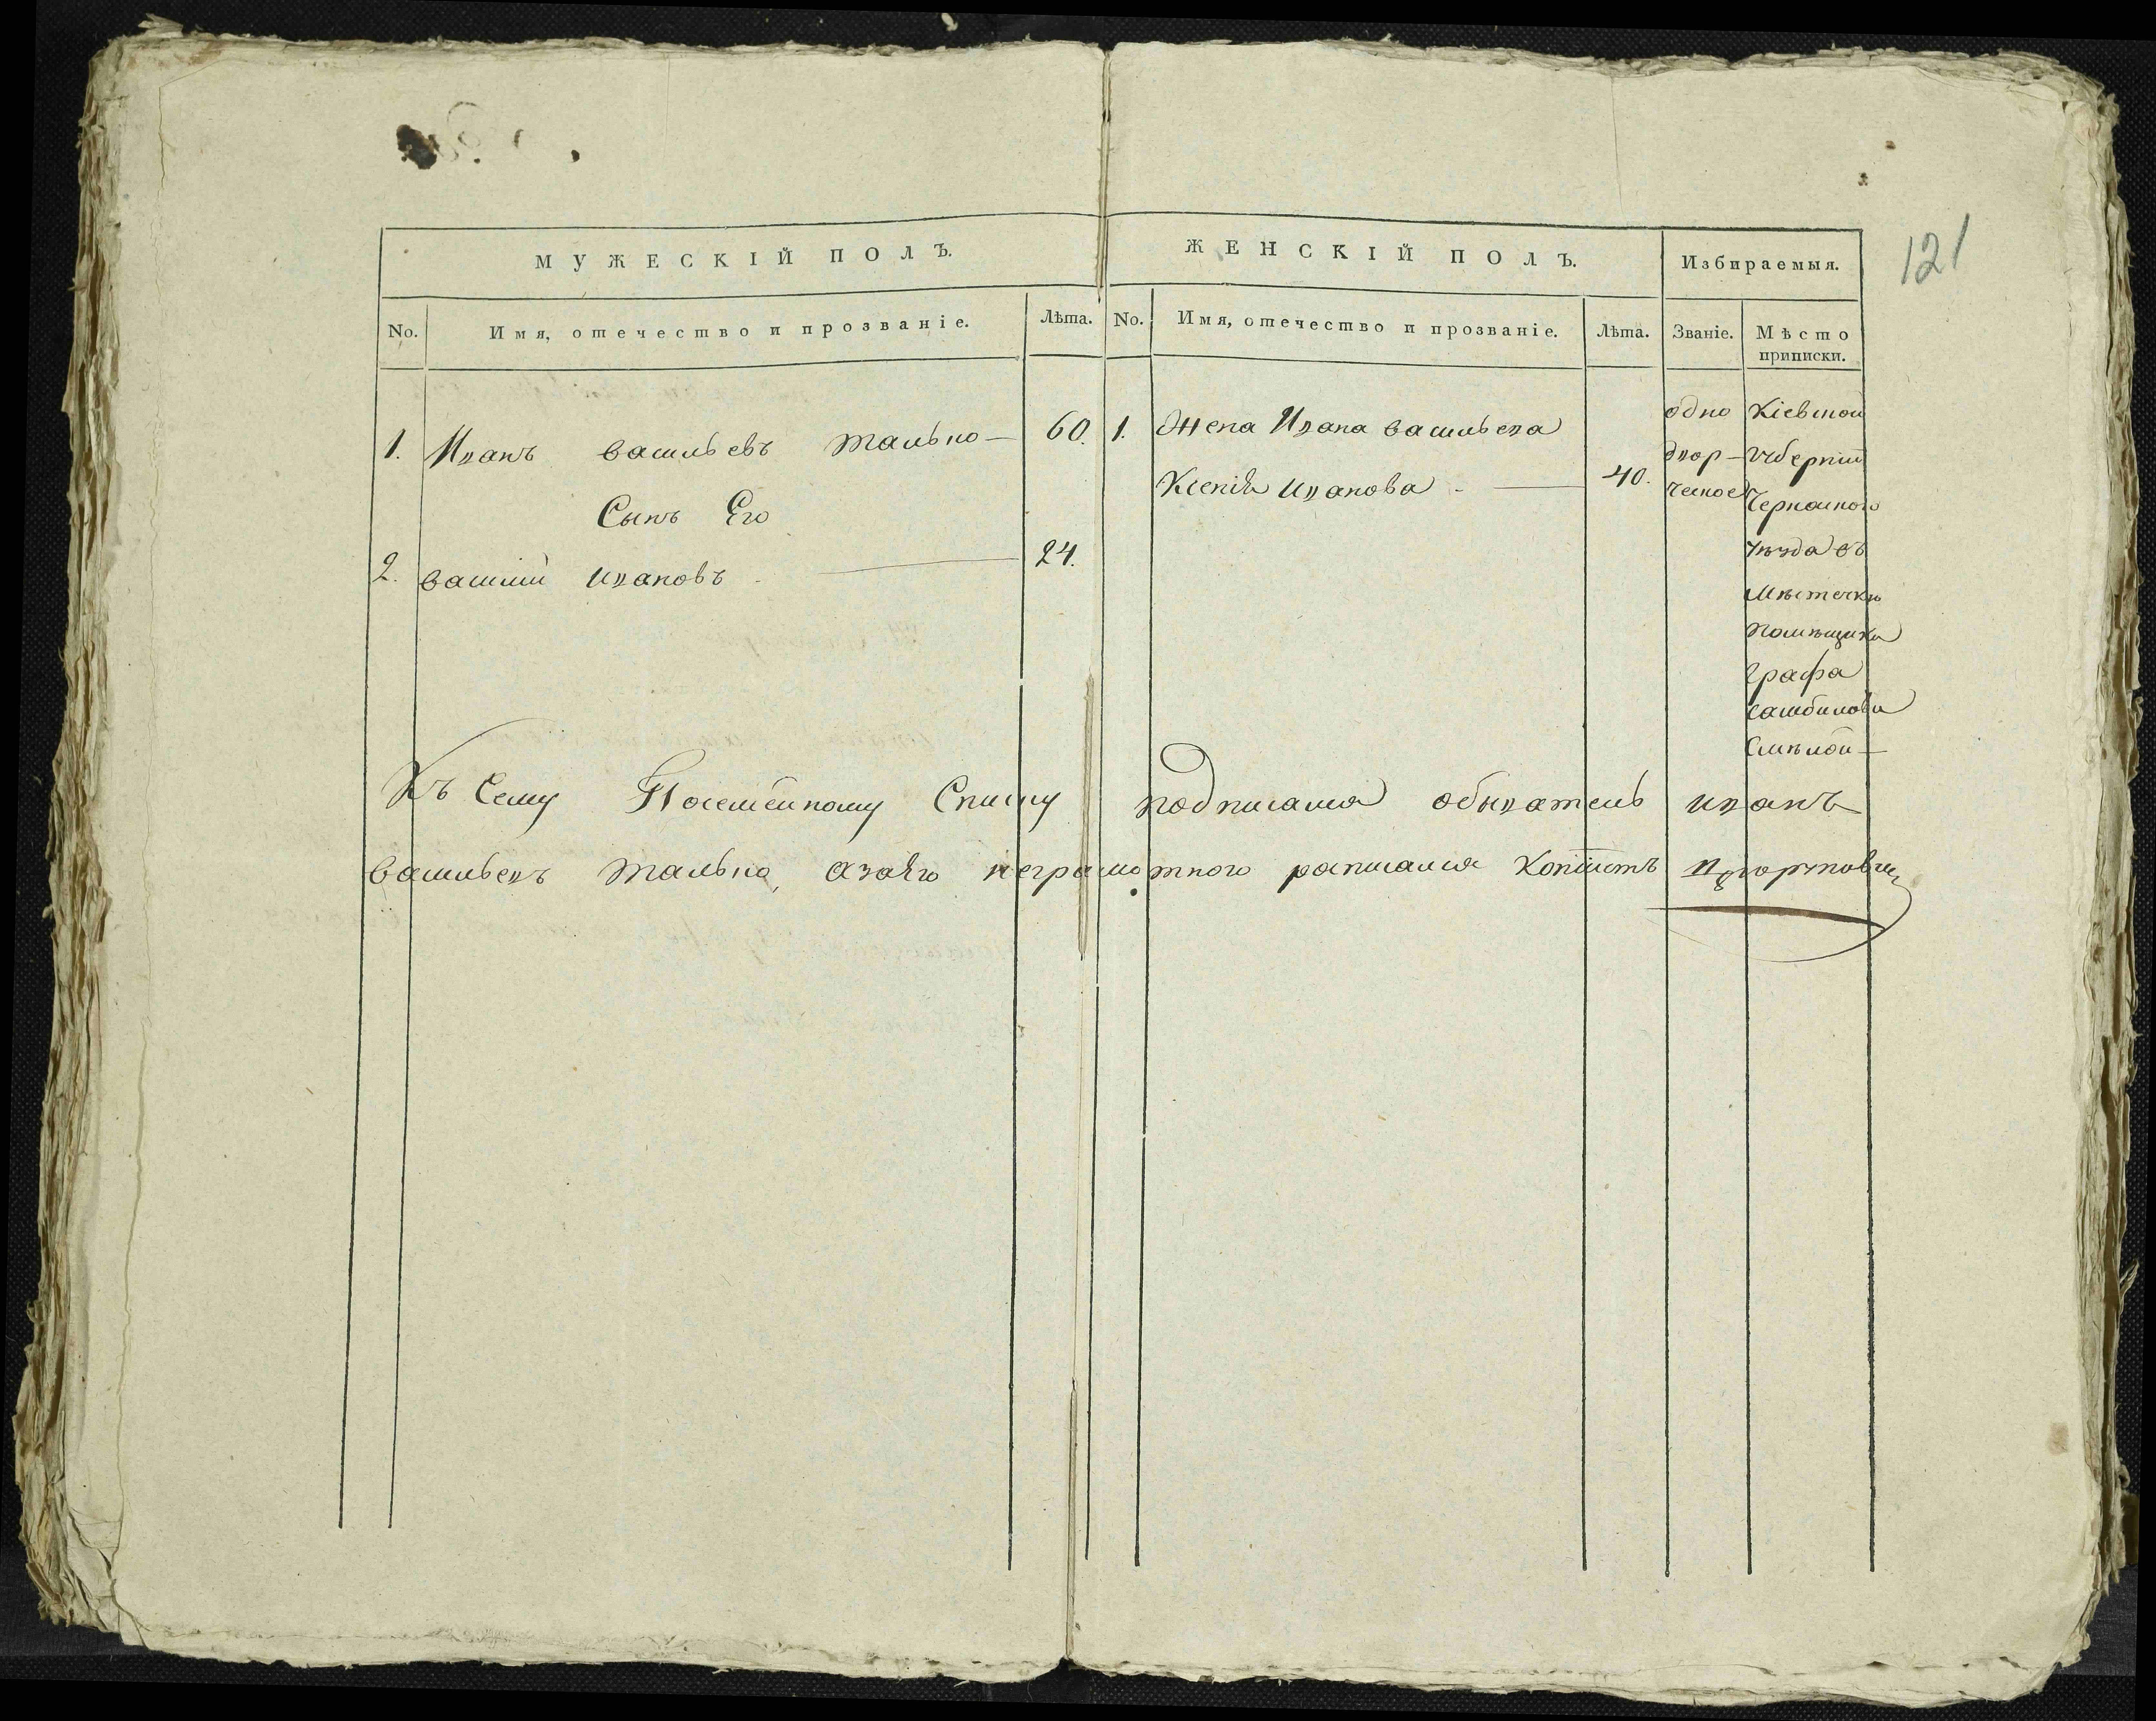 121
МУЖЕСКІЙ ПОЛЪ.
ЖЕНСКІЙ ПОЛЪ.
Избираемыя.
No.
Имя, отечество и прозваніе.
Лѣта.
No.
Имя, отечество и прозваніе.
Лѣта.
Званіе.
Мѣсто
приписки.
1. Иванъ васильевъ Талько — 60.
Сынъ Его
2. василій ивановъ — 24.
1. Жена Ивана васильева
Ксенія иванова — 40.
одно
двор-
ческое
Кіевской
губерніи
Черкаского
уѣзда въ
Мѣстечкѣ
помѣщика
графа
Самойлова
Смѣлой —
Къ Сему Посемейному Списку подписался обыватель иванъ
васильевъ Талько, азанего неграмотного росписался Копіистъ